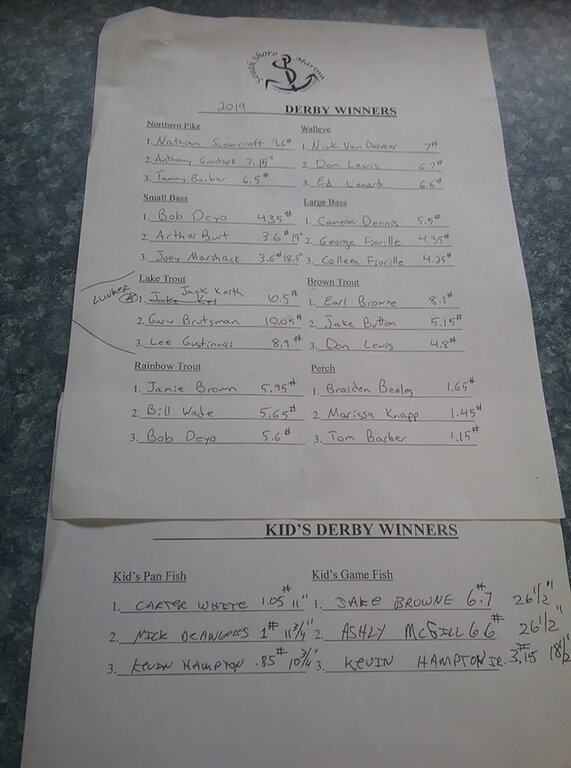 South Shore Marina
2019 DERBY WINNERS
Northern Pike
1. Nathan Scowcroft 9.6#
2. Anthony Goodsell 7.15#
3. Tammy Barber 6.5#
Walleye
1. Nick Van Deveer 7#
2. Don Lewis 6.7#
3. Ed Lenard 6.6#
Small Bass
1. Bob Deyo 4.35#
2. Arther Burt 3.6# 19"
3. Joey Marshack 3.6# 18.5"
Large Bass
1. Cameron Dennis 5.5#
2. George Fiorille 4.35#
3. Colleen Fiorille 4.25#
Lake Trout
LUNKER
1. Jack Keith 10.5#
2. Gary Brutsman 10.05#
3. Lee Gustinucci 8.9#
Brown Trout
1. Earl Browne 8.1#
2. Jake Button 5.15#
3. Don Lewis 4.8#
Rainbow Trout
1. Jamie Brown 5.95#
2. Bill Wade 5.65#
3. Bob Deyo 5.6#
Perch
1. Braiden 1.65#
2. Marissa Knapp 1.45#
3. Tom Barber 1.15#
KID'S DERBY WINNERS
Kid's Pan Fish
1. CARTER WHITE 1.05# 11"
2. NICK DEANGELIS 1# 11 3/4"
3. KEVIN HAMPTON .85# 10 3/4"
Kid's Game Fish
1. JAKE BROWNE 6.7# 26 1/2"
2. ASHLY McGILL 6.6# 26 1/2"
3. KEVIN HAMPTON JR. 3.15# 18 1/2"